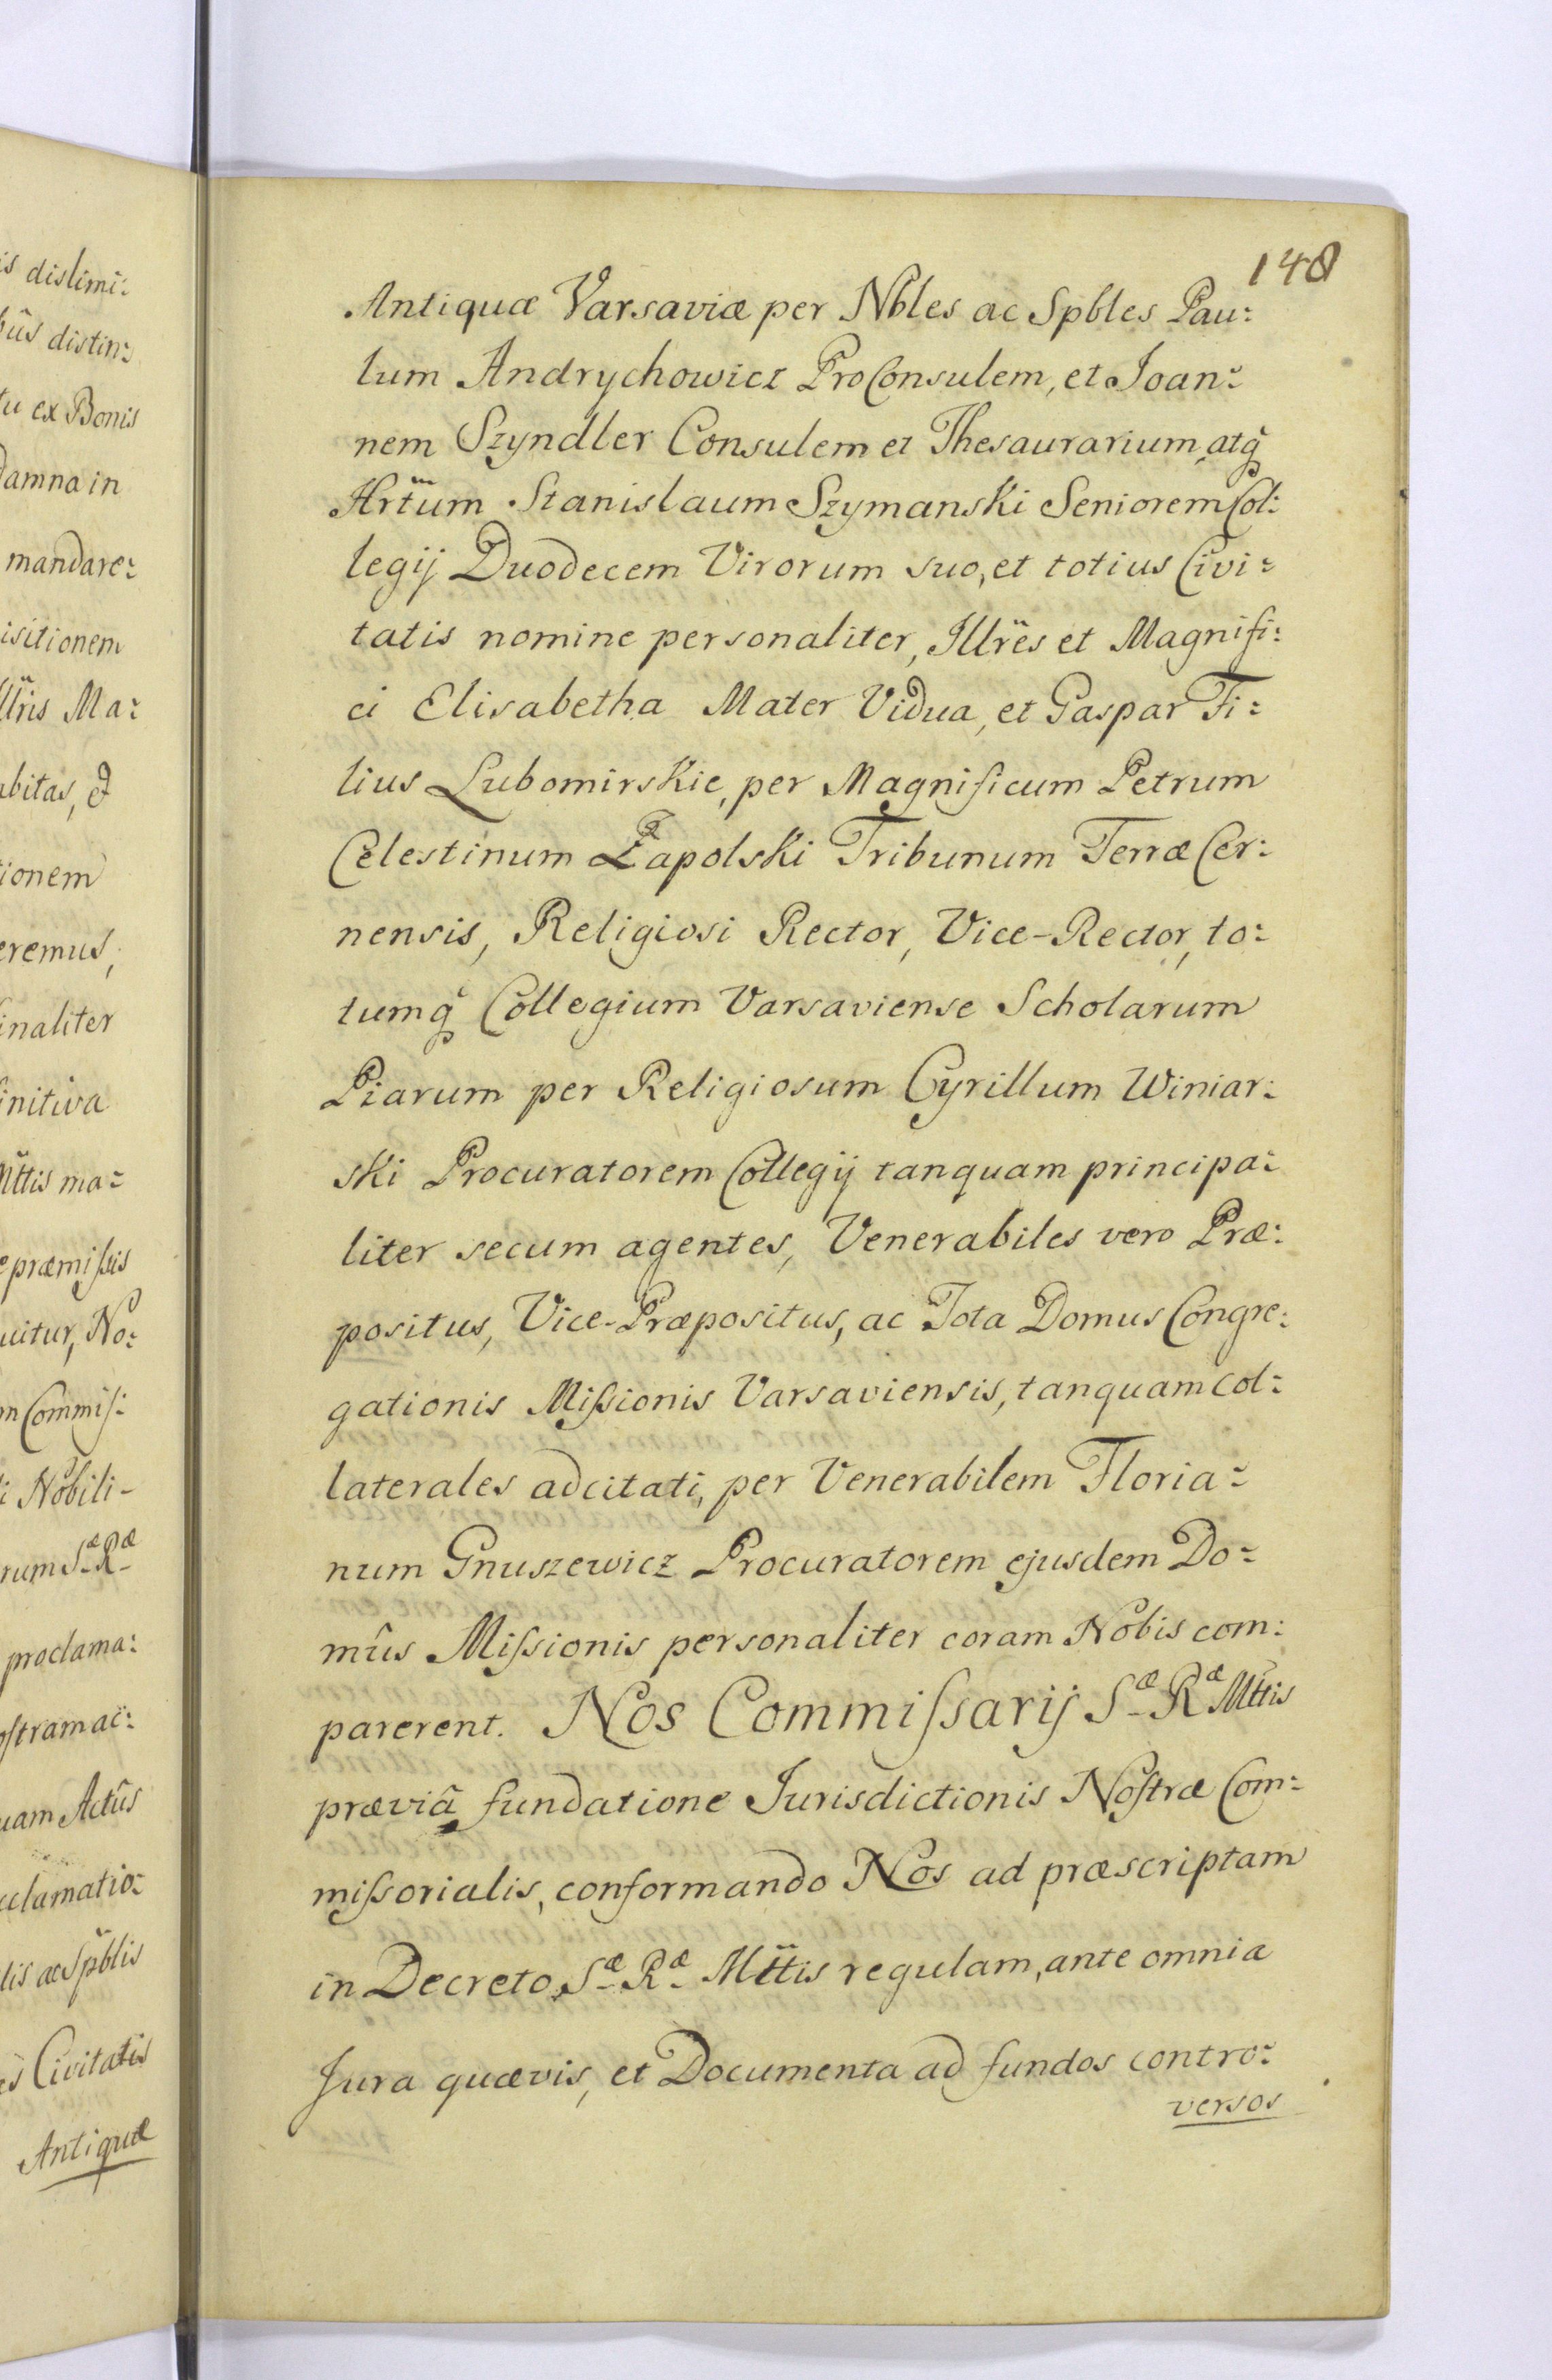 is dislimi:
bûs distin:
tu ex Bonis
damna in
mandare:
isitionem
llris Ma:
abitas, et
tionem
eremus,
finaliter
finitiva
Mttis ma:
præmiſsis
uitur, No:
m Commiſ:
i Nobili-
rum Sæ Ræ
proclama:
oſtram ac:
uam Actûs
clamatio:
lis ac Spblis
es Civitatis
Antiquæ
148
Antiquæ Varsaviæ per Nbles ac Spbles Pau:
lum Andrychowicz ProConsulem, et Joan:
nem Szyndler Consulem et Thesaurarium, atq̃
Hrtum Stanislaum Szymanski Seniorem Col:
legij Duodecem Virorum suo, et totius Civi:
tatis nomine personaliter, Illres et Magnifi:
ci Elisabetha Mater Vidua, et Gaspar Fi:
lius Lubomirskie, per Magnificum Petrum
Celestinum Łapolski Tribunum Terræ Cer:
nensis, Religiosi Rector, Vice-Rector, to:
tumq̃ Collegium Varsaviense Scholarum
Piarum per Religiosum Cyrillum Winiar:
ski Procuratorem Collegij tanquam principa:
liter secum agentes, Venerabiles vero Præ:
positus, Vice-Præpositus, ac Tota Domus Congre:
gationis Miſsionis Varsaviensis, tanquam col:
laterales adcitati, per Venerabilem Floria:
num Gnuszewicz Procuratorem ejusdem Do:
mûs Miſsionis personaliter coram Nobis com:
parerent. Nos Commiſsarij Sæ Ræ Mttis
præviâ fundatione Jurisdictionis Noſtræ Com:
miſsorialis, conformando Nos ad præscriptam
in Decreto Sæ Ræ Mttis regulam, ante omnia
Jura quævis, et Documenta ad fundos contro:
versos